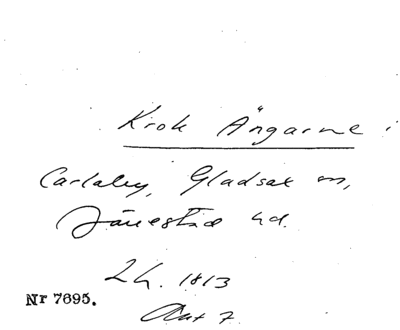 Krok Ängarne i
Carlaby, Gladsax sn,
Järrestad hd.
Lh. 1813
Nr 7695.
Akt 7